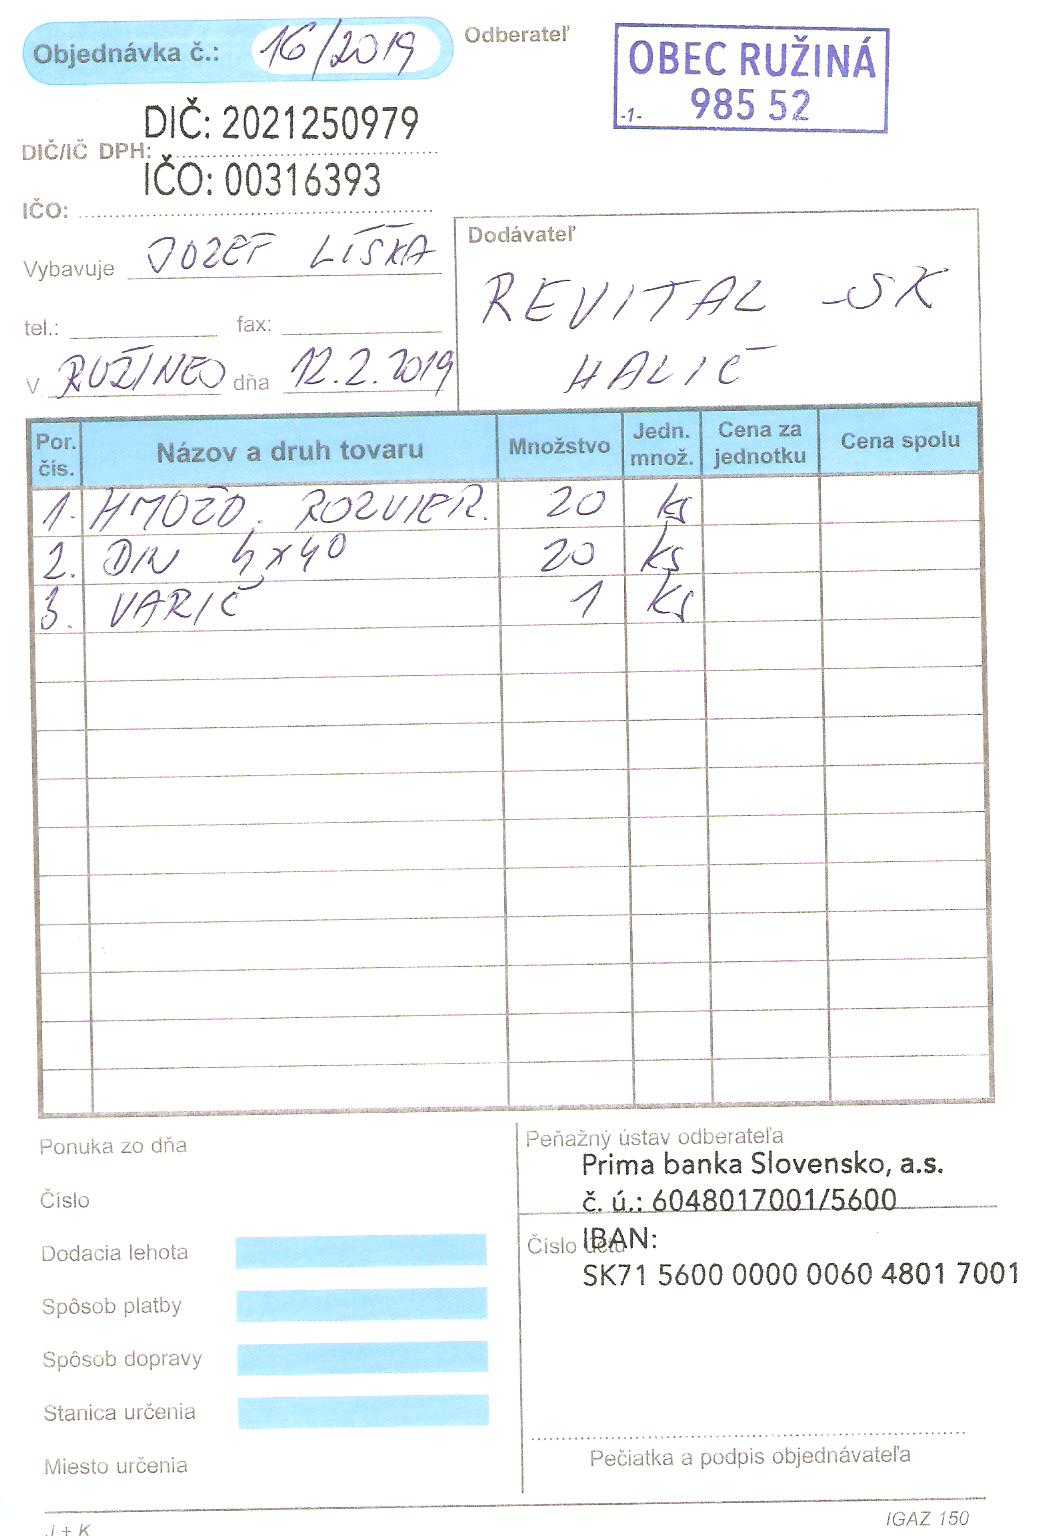 Objednávka č.: 16/2019
Odberateľ
OBEC RUŽINÁ
985 52
-1-
DIČ: 2021250979
DIČ/IČ DPH:
IČO: 00316393
IČO:
Vybavuje JOZEF LÍŠKA
tel.: fax:
V RUŽINEJ dňa 12.2.2019
Dodávateľ
REVITAL -SK
HALIČ
Por. čís. Názov a druh tovaru Množstvo Jedn. množ. Cena za jednotku Cena spolu
1. HMOŽD. ROZVIER. 20 ks
2. DIN 4x40 20 ks
3. VARIČ 1 ks
Ponuka zo dňa
Číslo
Dodacia lehota
Spôsob platby
Spôsob dopravy
Stanica určenia
Miesto určenia
Peňažný ústav odberateľa
Prima banka Slovensko, a.s.
č. ú.: 6048017001/5600
Číslo účtu
IBAN:
SK71 5600 0000 0060 4801 7001
Pečiatka a podpis objednávateľa
J + K
IGAZ 150